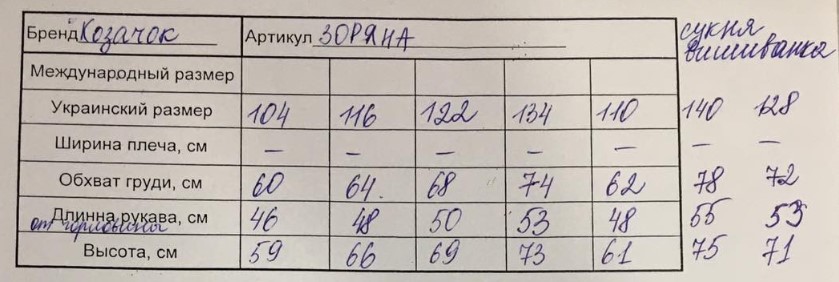 Бренд Козачок Артикул ЗОРЯНА сукня
вишиванка
Международный размер
Украинский размер 104 116 122 134 110 140 128
Ширина плеча, см – – – – – – –
Обхват груди, см 60 64. 68 74 62 78 72
Длинна рукава, см 46 48 50 53 48 55 53
от горловины
Высота, см 59 66 69 73 61 75 71